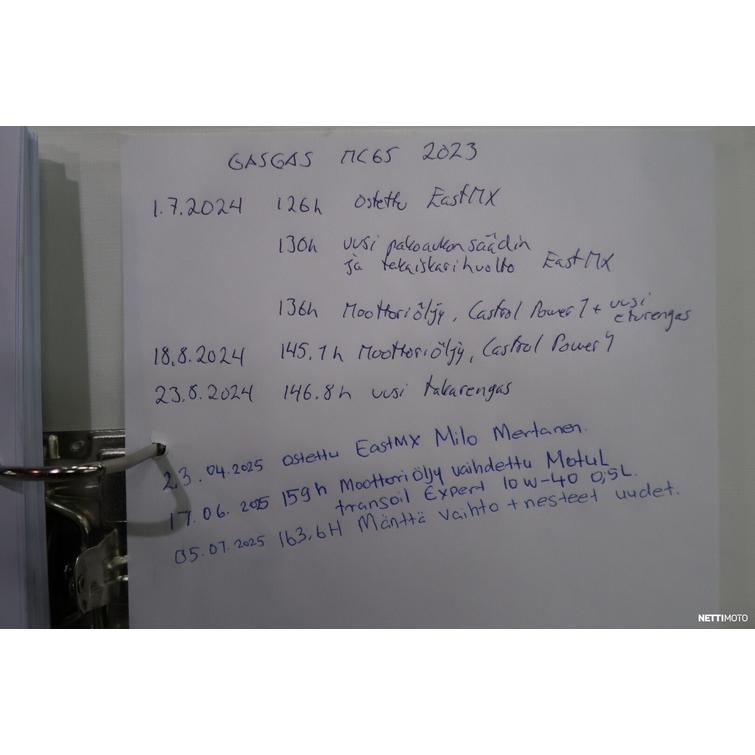 GASGAS MC65 2023
1.7.2024 126h Ostettu EastMX
130h uusi pakoaukonsäädin
ja tekaiskarihuolto EastMX
136h Moottoriöljy, Castrol Power 1 + uusi
eturengas
18.8.2024 145.1h Moottoriöljy, Castrol Power 1
23.8.2024 146.8h uusi takarengas
23.04.2025 ostettu EastMX Milo Mertanen.
17.06.2025 159h Moottoriöljy vaihdettu Motul
transoil Expert 10W-40 0,5L.
05.07.2025 163,6H Mänttä vaihto + nesteet uudet.
NETTIMOTO